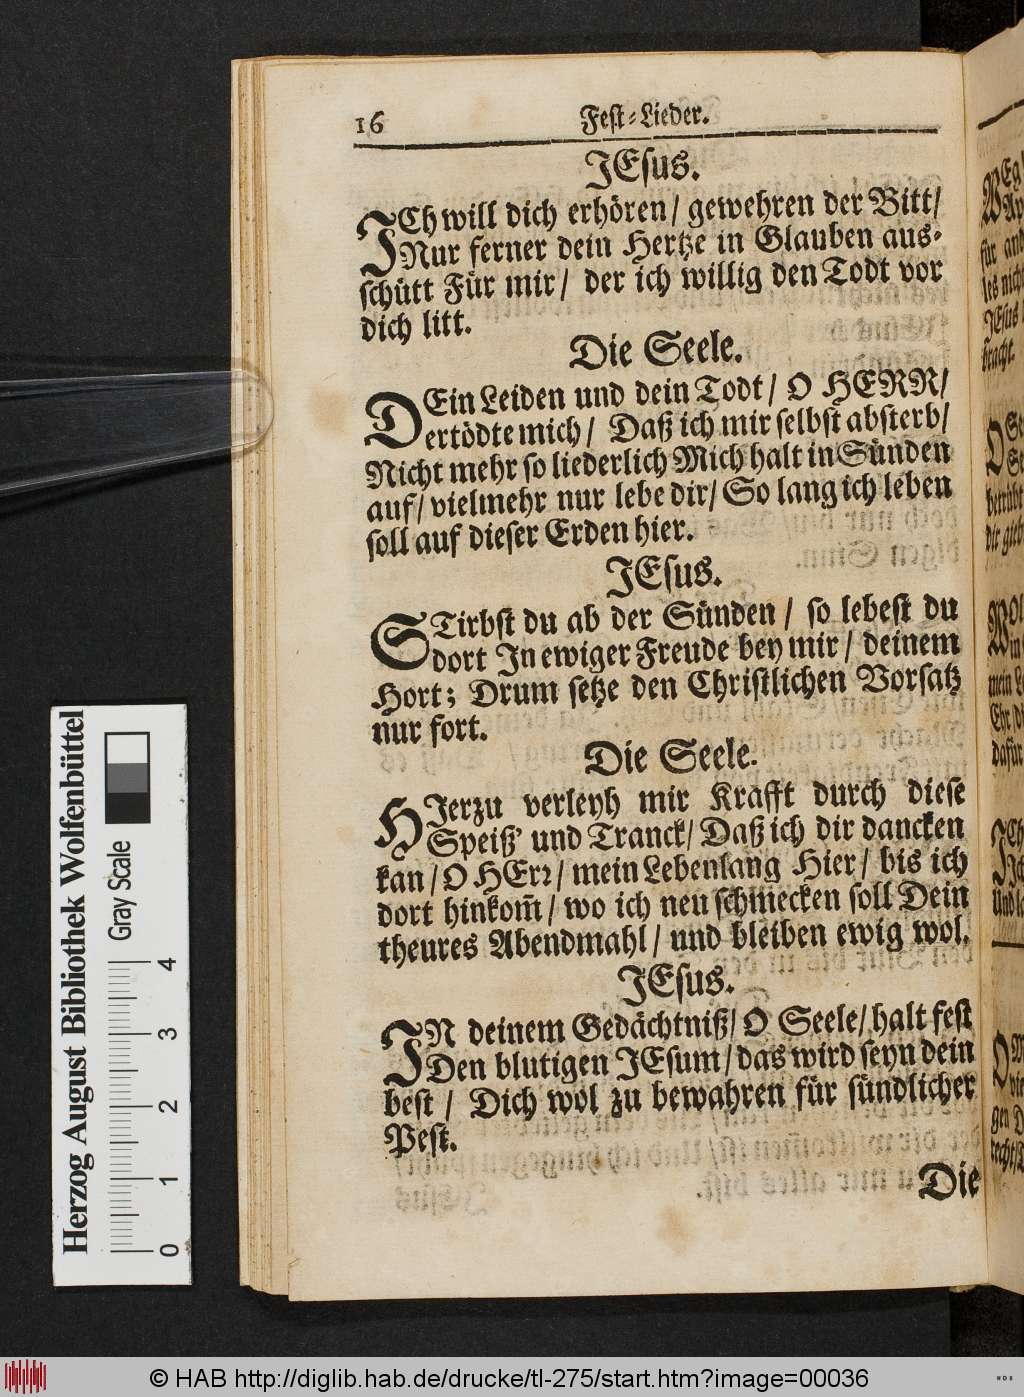 16 Fest-Lieder.
JEsus.
JCh will dich erhören/ gewehren der Bitt/
Nur ferner dein Hertze in Glauben aus-
schütt Für mir/ der ich willig den Todt vor
dich litt.
Die Seele.
DEin Leiden und dein Todt/ O HERR/
ertödte mich/ Daß ich mir selbst absterb/
Nicht mehr so liederlich Mich halt in Sünden
auf/ vielmehr nur lebe dir/ So lang ich leben
soll auf dieser Erden hier.
JEsus.
STirbst du ab der Sünden/ so lebest du
dort Jn ewiger Freude bey mir/ deinem
Hort; Drum setze den Christlichen Vorsatz
nur fort.
Die Seele.
HJerzu verleyh mir Krafft durch diese
Speiß' und Tranck/ Daß ich dir dancken
kan/ O HErr/ mein Lebenlang Hier/ bis ich
dort hinkom̃/ wo ich neu schmecken soll Dein
theures Abendmahl/ und bleiben ewig wol.
JEsus.
JN deinem Gedächtniß/ O Seele/ halt fest
Den blutigen JEsum/ das wird seyn dein
best/ Dich wol zu bewahren für sündlicher
Pest.
Die
Herzog August Bibliothek Wolfenbüttel
Gray Scale
0 1 2 3 4
© HAB http://diglib.hab.de/drucke/tl-275/start.htm?image=00036